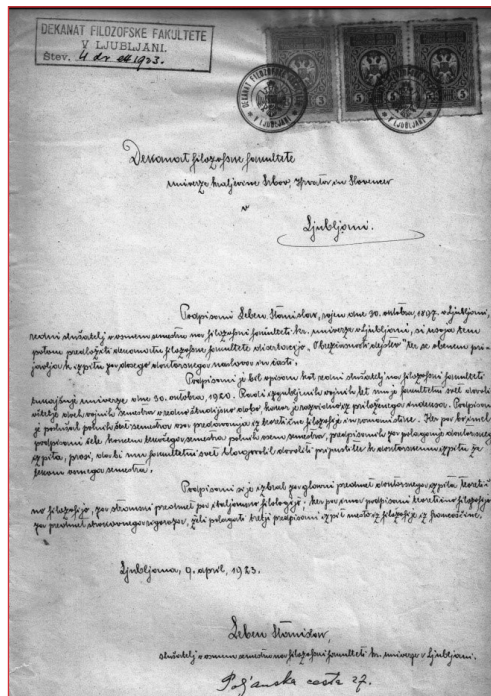 DEKANAT FILOZOFSKE FAKULTETE
V LJUBLJANI.
Štev. 1923.
DEKANAT FILOZOFSKE
V LJUBLJANI
Dekanat filozofske fakultete
univerze kraljevine Srbov, Hrvatov in Slovencev
v
Ljubljani.
Podpisani Leben Stanislav, rojen dne 30. oktobra, 1897. v Ljubljani,
redni slušatelj v osmem semestru na filozofski fakulteti kr. univerze v Ljubljani, si usoja tem
potom predložiti dekanatu filozofske fakultete disertacijo " ter se obenem pri-
javlja k izpitu za dosego doktorskega naslova in časti.
Podpisani je bil vpisan kot redni slušatelj na filozofski fakulteti
tukajšnje univerze dne 30. oktobra, 1920. Radi izgubljenih vojnih let mu je fakultetni svet dovolil
vštetje dveh vojnih semestrov v redno študijsko dobo, kakor je razvidno iz priloženega indeksa. Podpisani
je poslušal polnih šest semestrov predavanja iz teoretične filozofije in romanistike. Ker pa bo imel
podpisani šele koncem tekočega semestra polnih osem semestrov, predpisanih za polaganje doktorskega
izpita, prosi, da bi mu fakultetni svet blagovolil dovoliti pripustitev k doktorskemu izpitu že
tekom osmega semestra.
Podpisani si je izbral za glavni predmet doktorskega izpita teoretič-
no filozofijo, za stranski predmet pa italijansko filologijo; ker pa ima podpisani teoretično filozofijo
za predmet strokovnega rigoroza, želi polagati tretji predpisani izpit mesto iz filozofije iz francoščine.
Ljubljana, 9. april, 1923.
Leben Stanislav,
slušatelj v osmem semestru na filozofski fakulteti kr. univerze v Ljubljani.
Poljanska cesta 27.